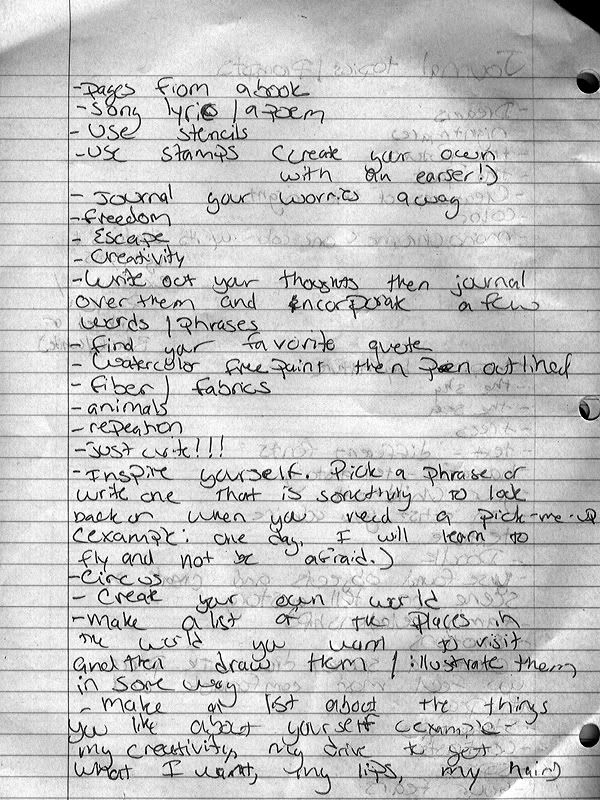 -pages from a book
- song lyric / a poem
- USE stencils
-USE stamps (create your own
with an earser!)
- Journal your worries away
-freedom
- Escape
- Creativity
-Write out your thoughts then journal
over them and incorporate a few
words / phrases
- find your favorite quote
- watercolor free paint then pen outlined
- fiber / fabrics
-animals
- repeation
-just write!!!
-Inspire yourself. Pick a phrase or
write one that is something to look
back on when you need a pick-me-up
(example: one day, I will learn to
fly and not be afraid.)
-Circus
- Create your own world
-make a list of the places in
the world you want to visit
and then draw them / illustrate them
in some way
- make a list about the things
you like about yourself (example-
my creativity, my drive to get
what I want, my lips, my hair)